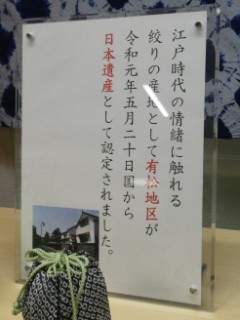 江戸時代の情緒に触れる
絞りの産地として有松地区が
令和元年五月二十日国から
日本遺産として認定されました。